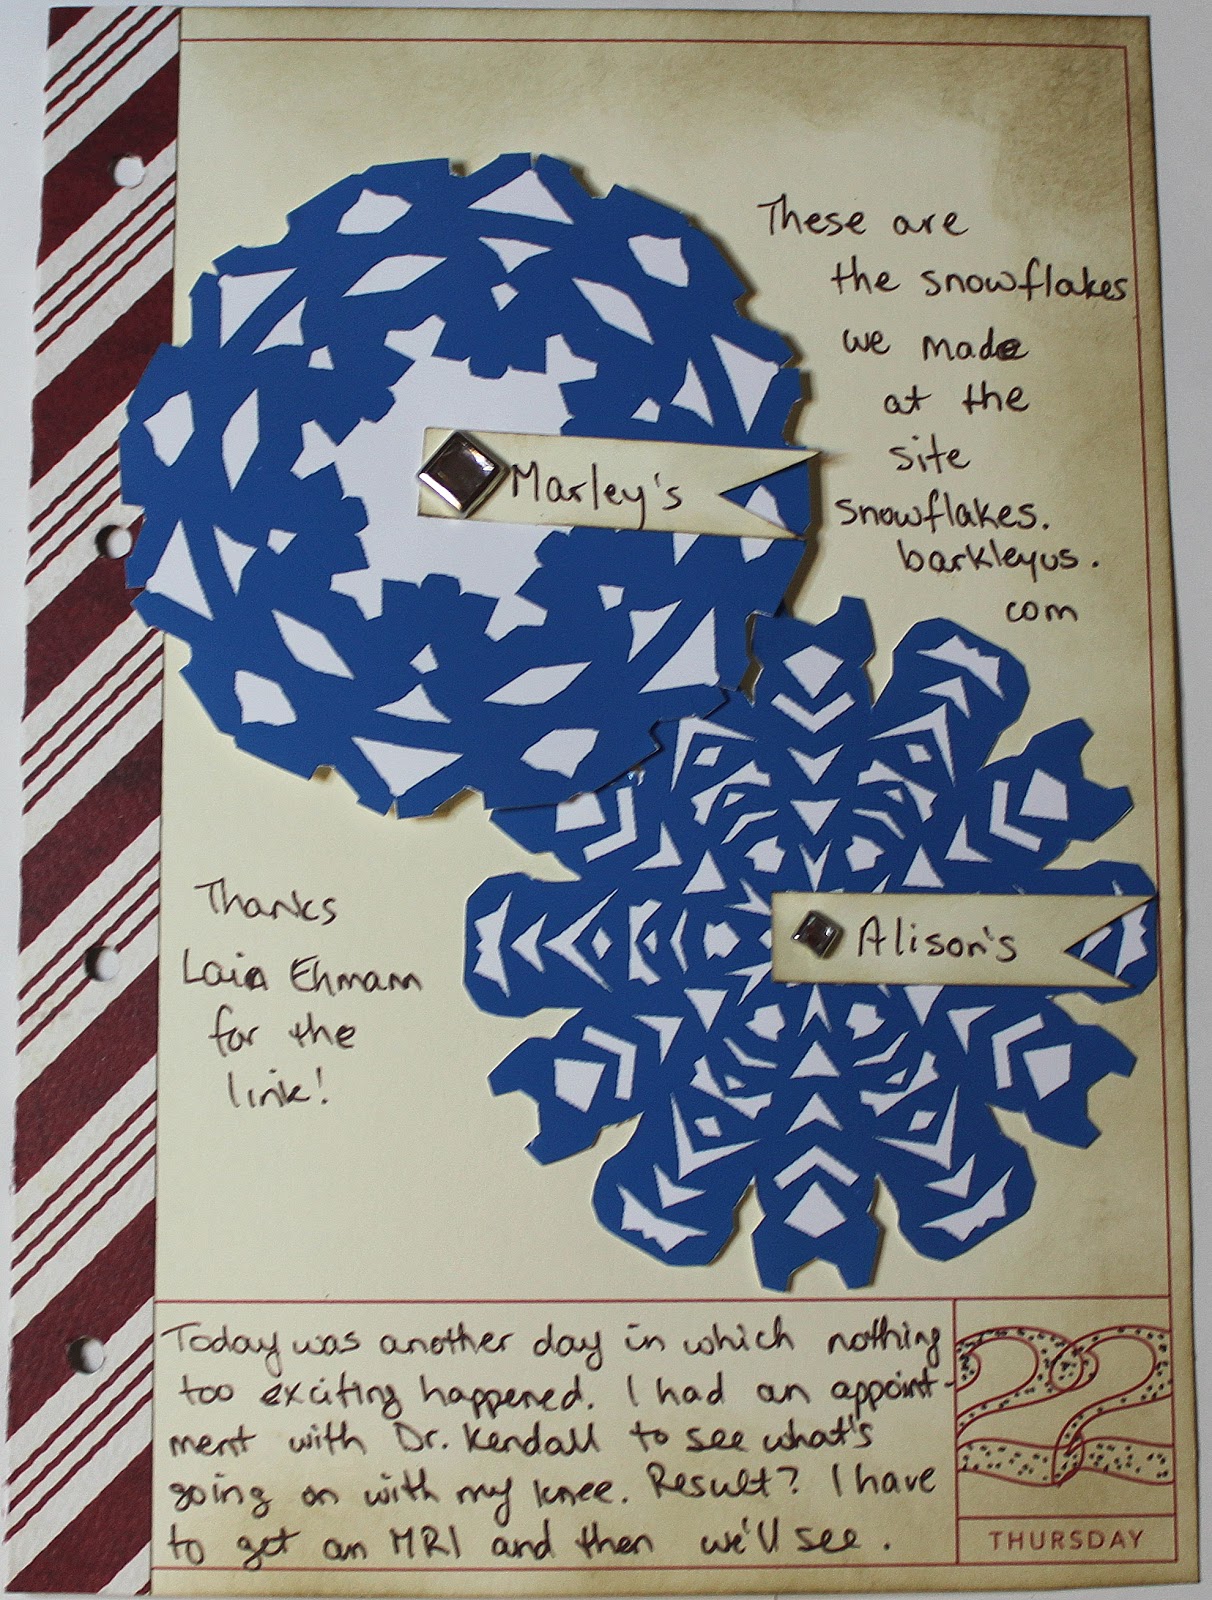 These are
the snowflakes
we made
at the
site
snowflakes.
barkleyus.
com
Marley's
Alison's
Thanks
Lain Ehmann
for the
link!
Today was another day in which nothing
too exciting happened. I had an appoint-
ment with Dr. Kendall to see what's
going on with my knee. Result? I have
to get an MRI and then we'll see.
22
THURSDAY